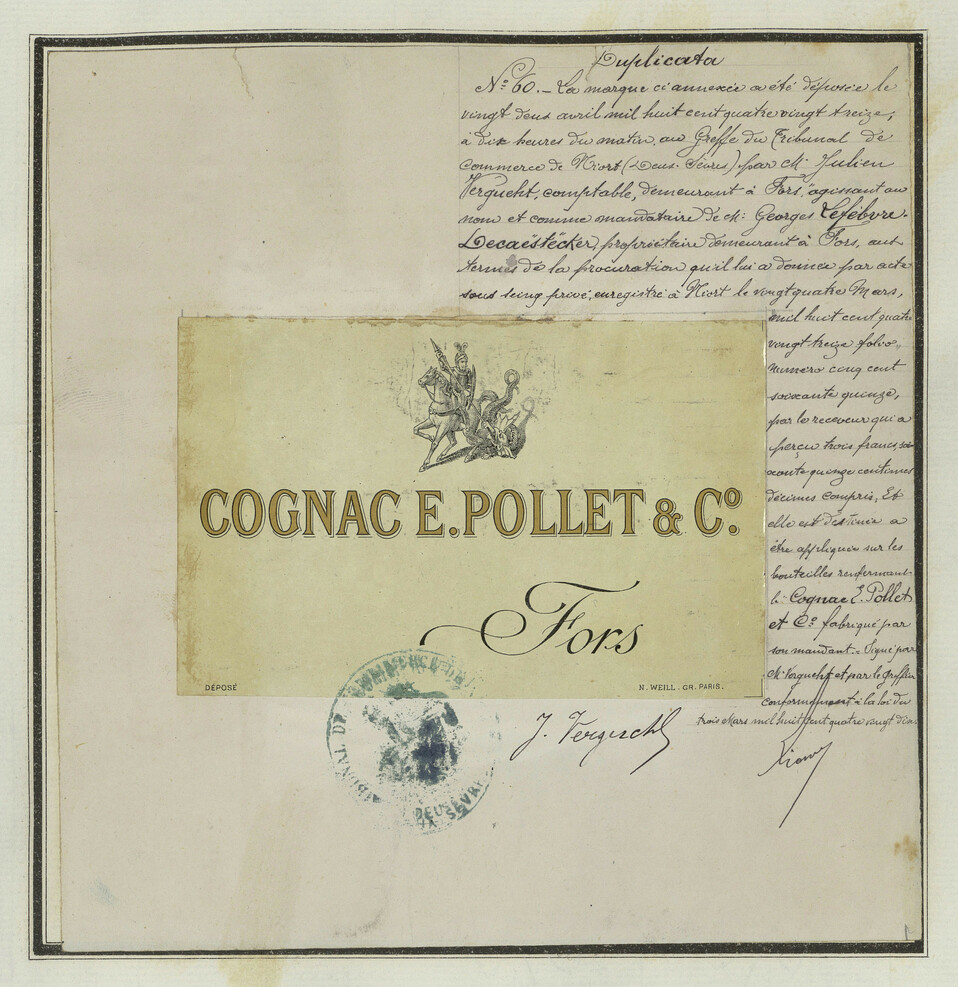 Duplicata
N.º 60. _ La marque ci annexée a été déposée le
vingt deux avril mil huit cent quatre vingt treize,
à dix heures du matin, au Greffe du Tribunal de
Commerce de Niort (Deux-Sèvres) par M. Julien
comptable, demeurant à Fors, agissant au
nom et comme mandataire de M. Georges Lefèbvre-
Decaëstècker, propriétaire demeurant à Fors, aux
termes de la procuration qu'il lui a donnée par acte
sous seing privé, enregistré à Niort le vingt quatre Mars,
mil huit cent quatre
vingt treize folio
numéro cinq cent
soixante quinze,
par le receveur qui a
perçu trois francs, soi-
xante quinze centimes
décimes compris, Et
elle est destinée a
être appliquée sur les
bouteilles renfermant
le Cognac E. Pollet
et Cº fabriqué par
son mandant. Signé par
M. et par le greffier
conformément à la loi du
trois Mars mil huit cent quatre vingt dix.
COGNAC E. POLLET & Cº.
Fors
DÉPOSÉ
N. WEILL. GR. PARIS.
TRIBUNAL DE COMMERCE
DEUX SÈVRES